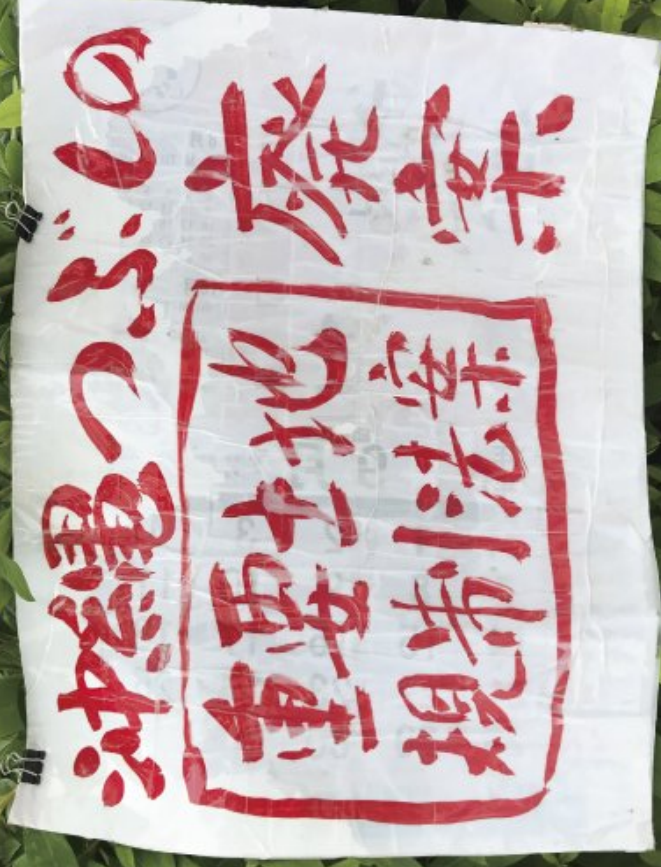 沖縄つぶしの
重要土地
規制法案
廃案